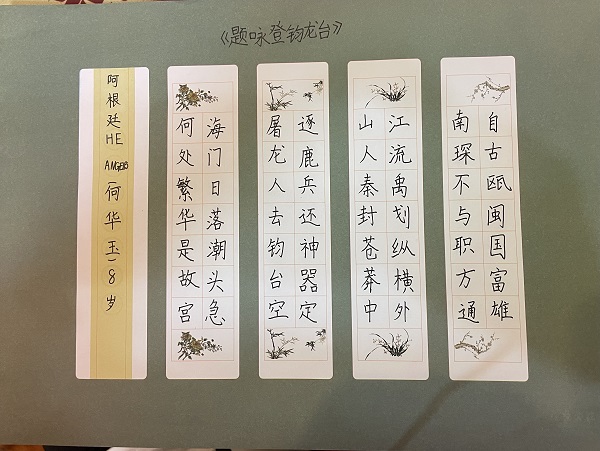 《题咏登钧龙台》
自古瓯闽国富雄
南琛不与职方通
江流禹划纵横外
山人秦封苍莽中
逐鹿兵还神器定
屠龙人去钧台空
海门日落潮头急
何处繁华是故宫
阿根廷HE ANGELES(何华玉)8岁